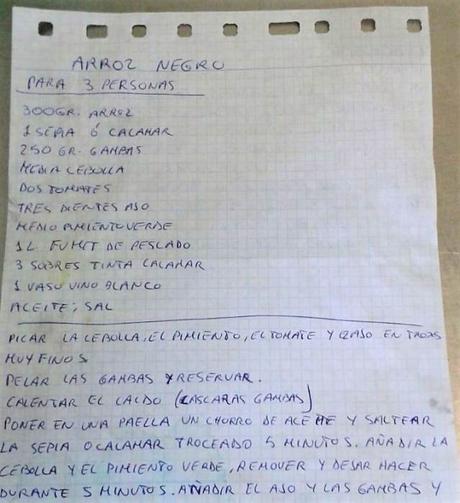 ARROZ NEGRO
PARA 3 PERSONAS
300GR. ARROZ
1 SEPIA Ó CALAMAR
250 GR. GAMBAS
MEDIA CEBOLLA
DOS TOMATES
TRES DIENTES AJO
MEDIO PIMIENTO VERDE
1L. FUMET DE PESCADO
3 SOBRES TINTA CALAMAR
1 VASO VINO BLANCO
ACEITE; SAL
PICAR LA CEBOLLA, EL PIMIENTO, EL TOMATE Y EL AJO EN TROZOS
MUY FINOS
PELAR LAS GAMBAS Y RESERVAR.
CALENTAR EL CALDO (CASCARAS GAMBAS)
PONER EN UNA PAELLA UN CHORRO DE ACEITE Y SALTEAR
LA SEPIA O CALAMAR TROCEADO 5 MINUTOS. AÑADIR LA
CEBOLLA Y EL PIMIENTO VERDE, REMOVER Y DEJAR HACER
DURANTE 5 MINUTOS. AÑADIR EL AJO Y LAS GAMBAS Y